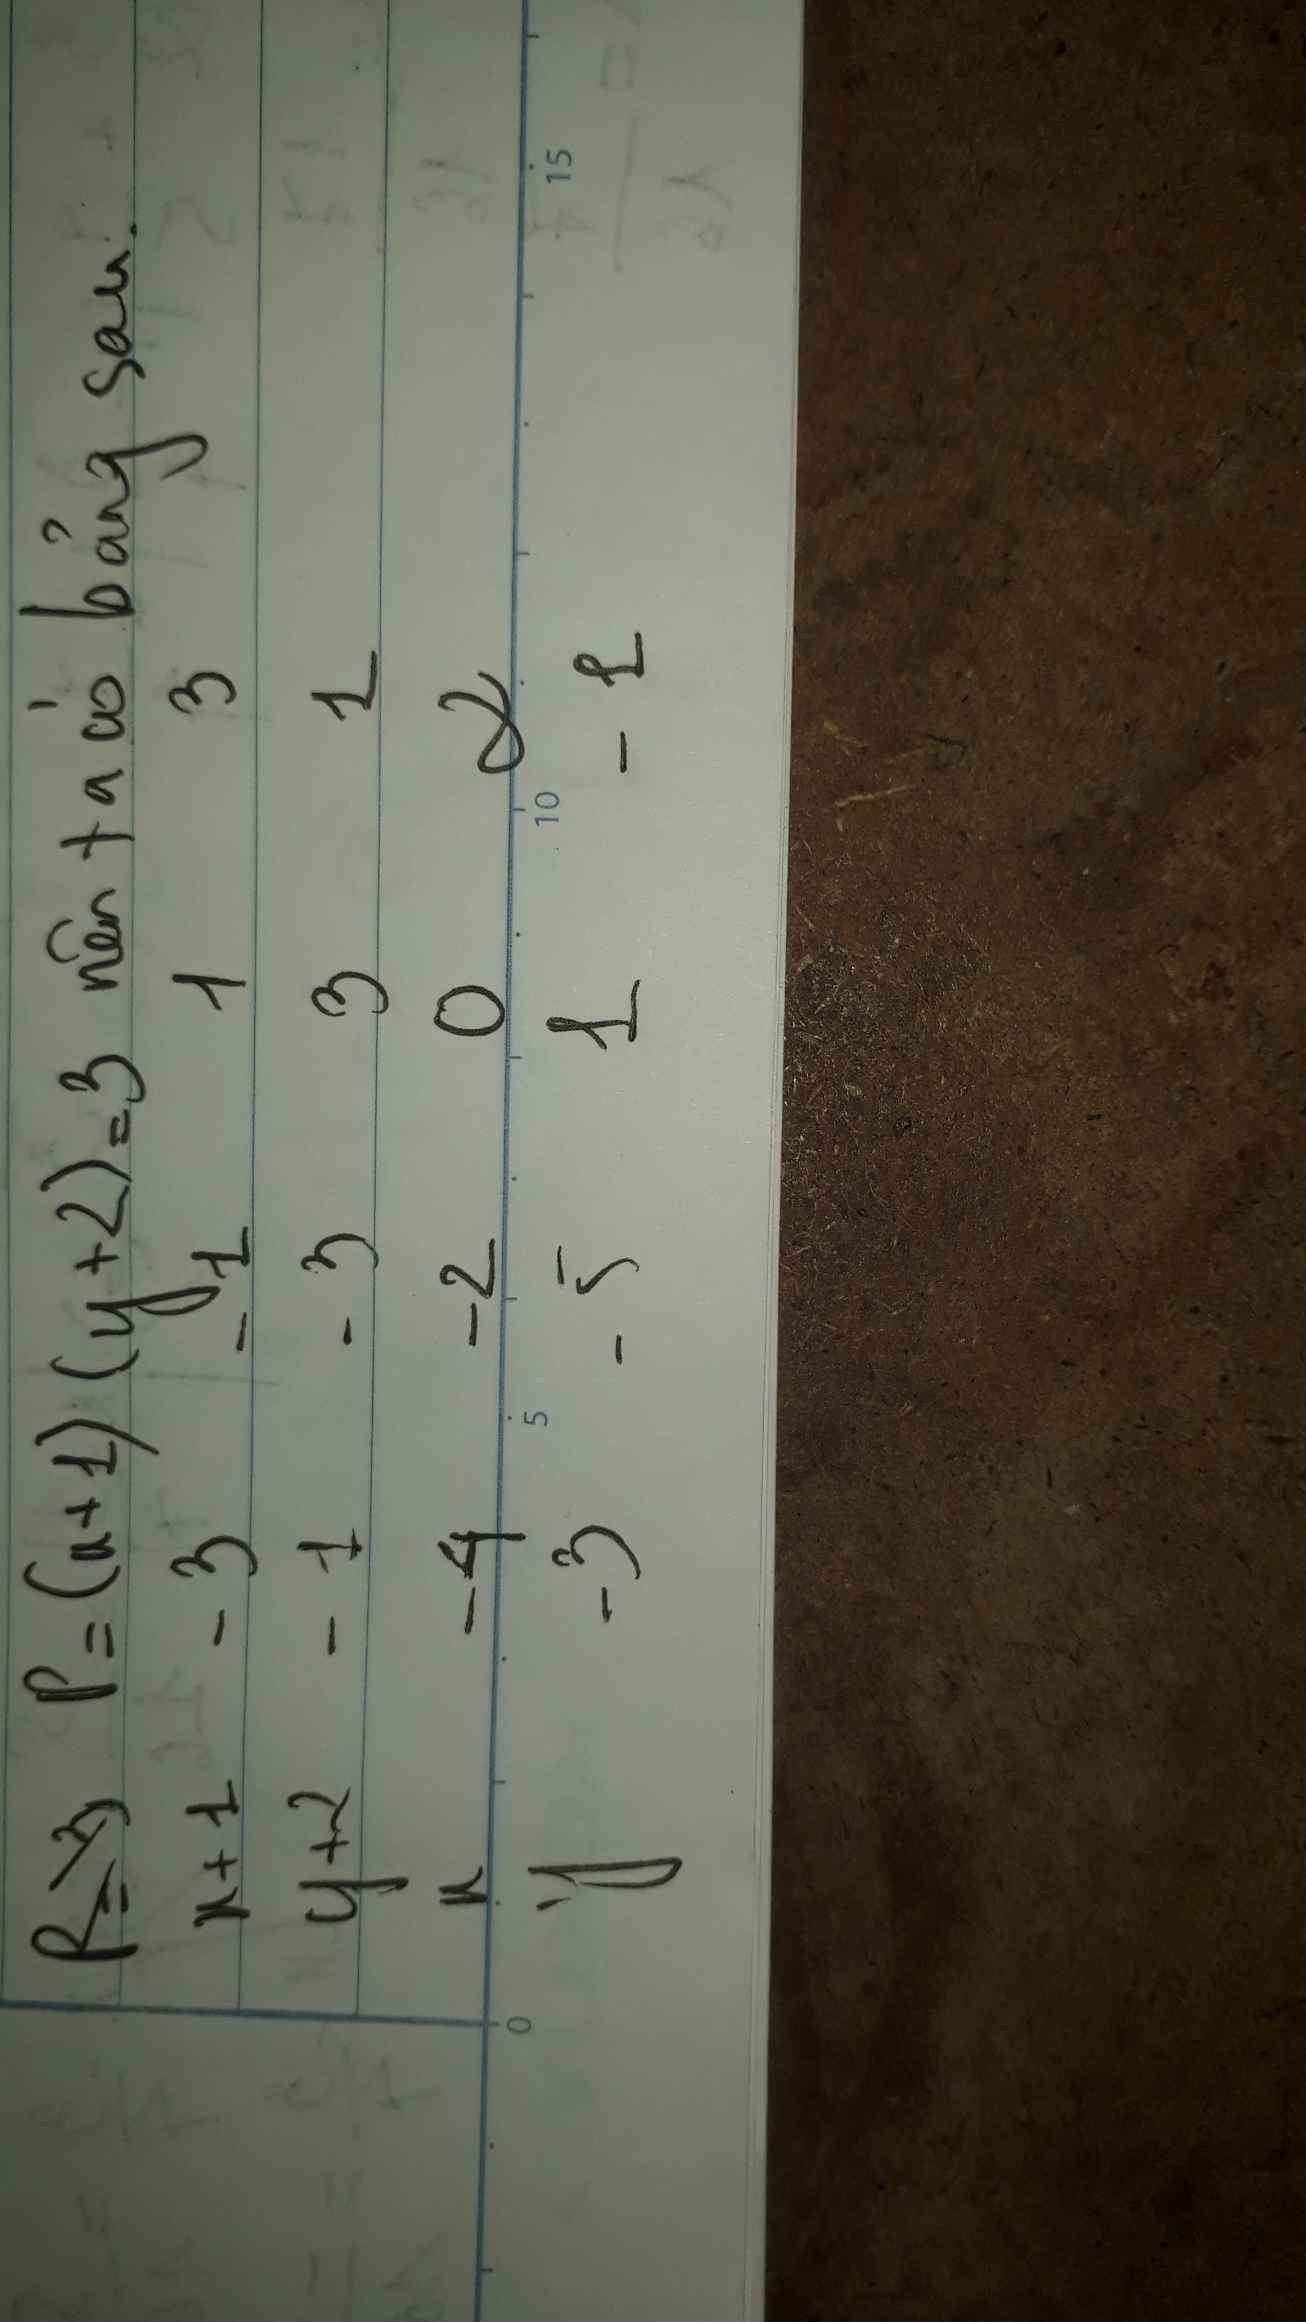 P=3 P=(x+1)(y+2)=3 nên ta có bảng sau:
x+1 -3 -1 1 3
y+2 -1 -3 3 1
x -4 -2 0 2
0 5 10 15
y -3 -5 1 -1